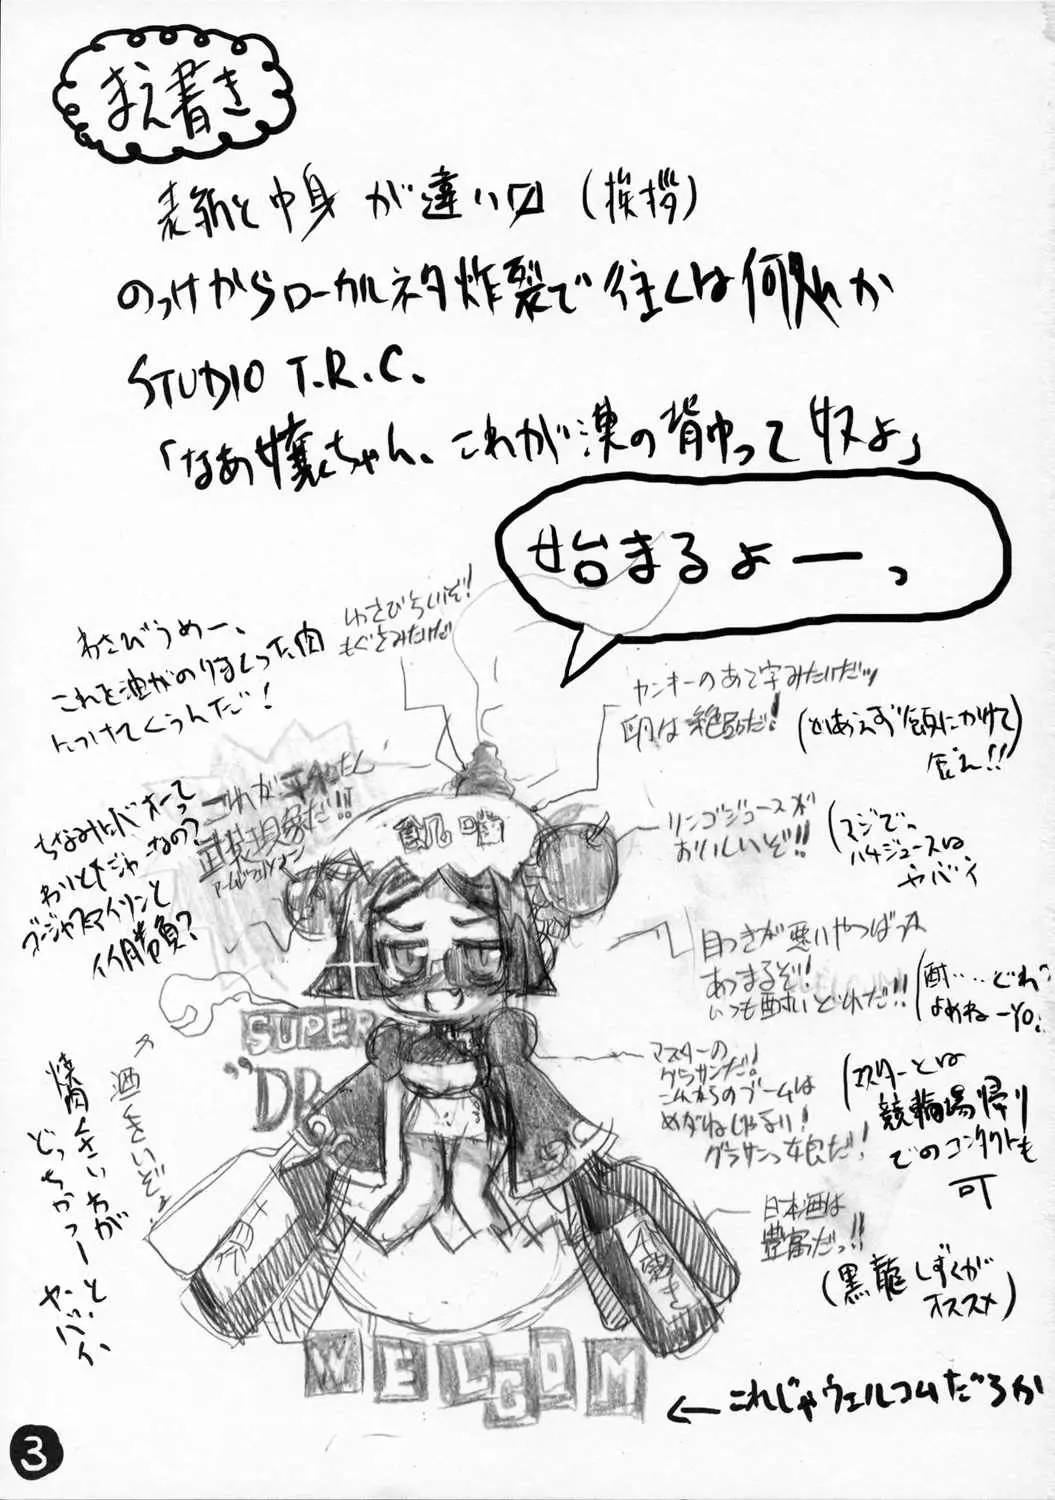 まえ書き
表紙と中身が違い〼(挨拶)
のっけからローカルネタ炸裂で往くは何処か
STUDIO T.R.C.
「なあ嬢ちゃん、これが漢の背中って奴よ」
始まるよーっ
わさびうめー、
これを油がのりまくった肉
につけてくうんだ!
わさびらいぞ!
もぐさみたいだ
ヤンキーのあて字みたいだッ
卵は絶品だ!
(とりあえず飯にかけて
食え!!)
これが平和たん
武装現象だ!!
アームドフェノメノン
ちなみにバオーって
わりとメジャーなの?
ブージャムアイリンと
イイ勝負?
凱嘴
リンゴジュースが
おいしいぞ!!
(マジで。
ハチジュースは
ヤバイ
目つきが悪いやつばっか
あつまるぞ!
いつも酔いどれだ!!
(酎‥‥どれ?
よめねーYO!
SUPER
"DR
マスターの
グラサンだ!
これからのブームは
めがねじゃない!
グラサンっ娘だ!
(マスターとは
競輪場帰り
でのコンタクトも
可
酒くさいぞっ
焼肉くさいわが
どっちかつーと
ヤバイ
日本酒は
豊富だっ!!
(黒龍しずくが
オススメ)
WELCOM
←これじゃウェルコムだろが
3